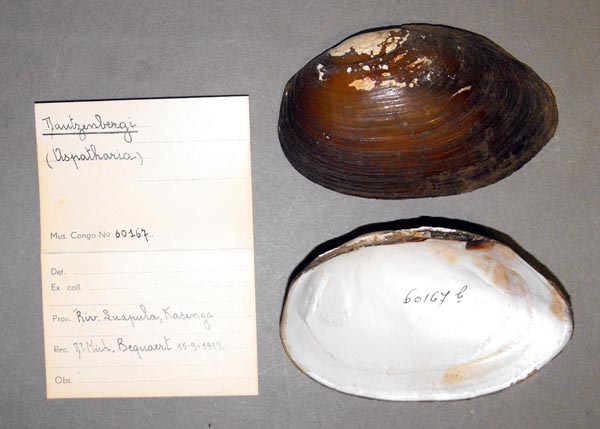 Dautzenbergi
(Aspatharia)
Mus. Congo No 60167
Det.
Ex coll.
Prov. Riv. Luapula, Kasenga
Rec. Dr. Mich. Bequaert 15-9-193
Obs.
60167 b